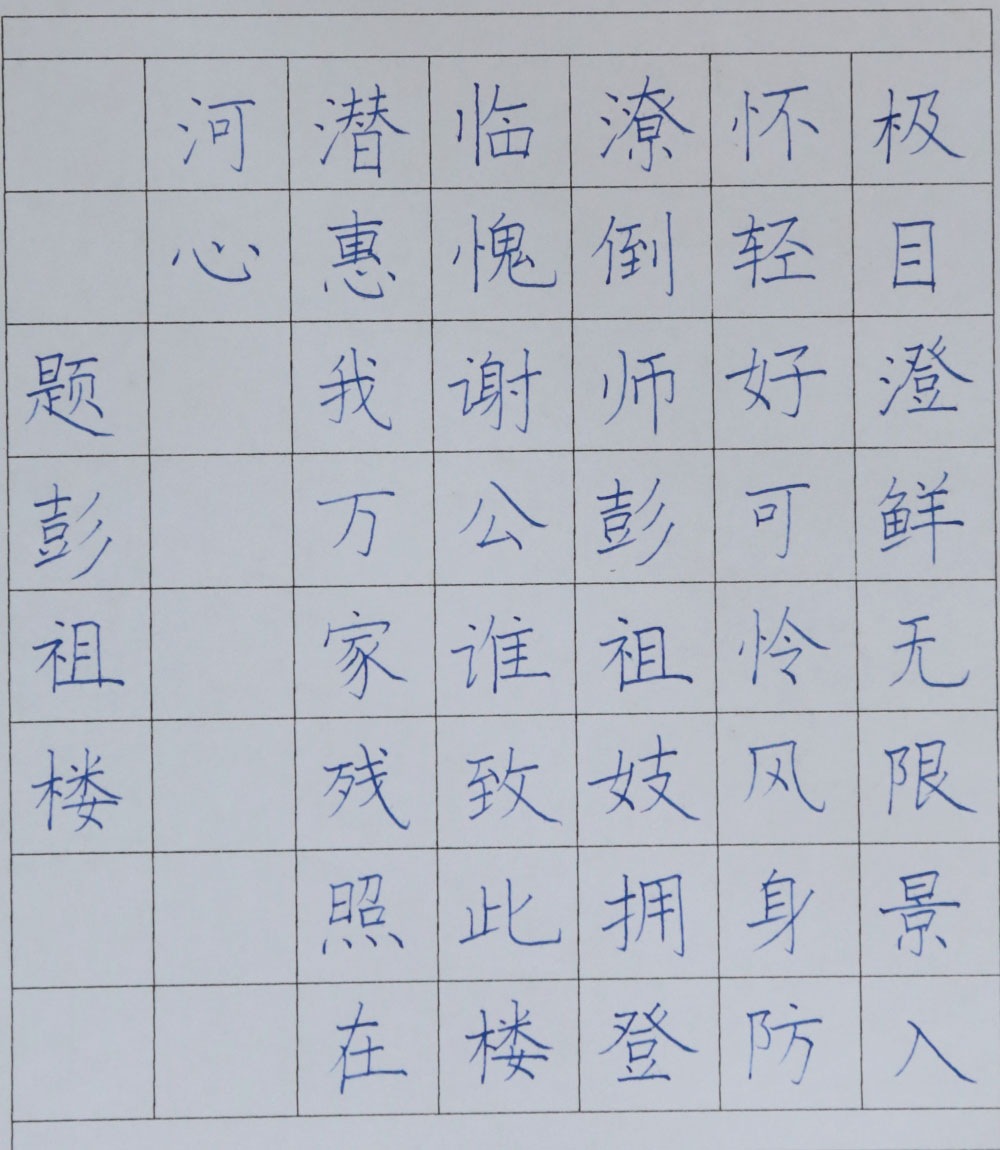 极目澄鲜无限景入
怀轻好可怜风身防
潦倒师彭祖妓拥登
临愧谢公谁致此楼
潜惠我万家残照在
河心
题彭祖楼